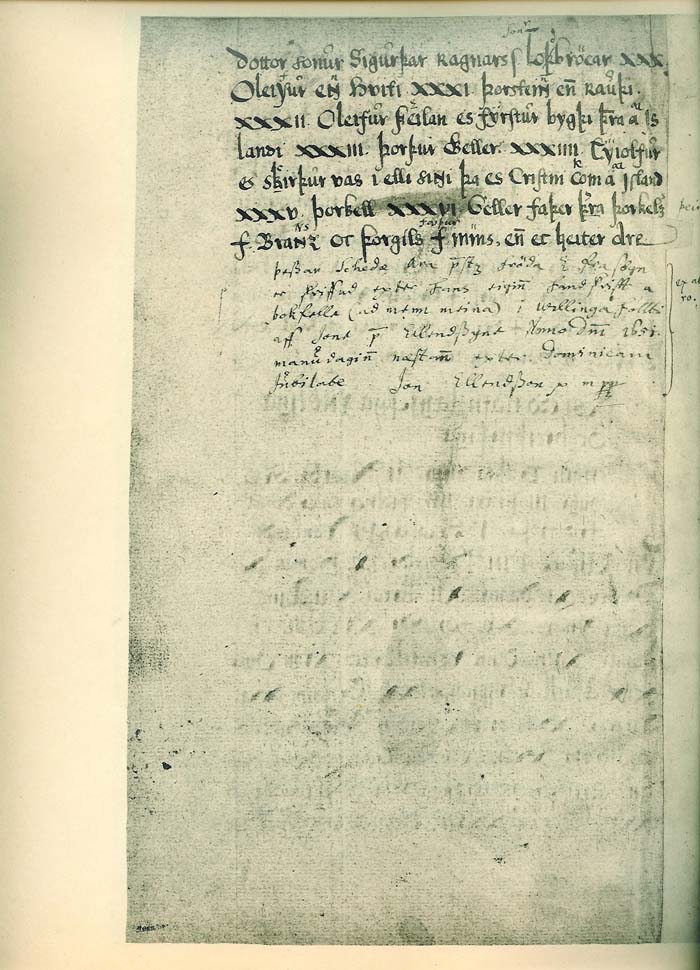 sonr
Dottor sonur Sigurþar Ragnars s loþbrocar XXX.
Oleifur enn Hviti. XXXI þorsteinn enn Rauþi.
XXXII. Oleifur feilan es fyrstur bygþi þra a Is
landi XXXIII. þorþur Geller. XXXIIII. Eyiolfur
es skirþur vas i elli sinni þa es Cristni kom a Island
XXXV. þorkell XXXVI Geller faþer þra þorkels
faþur
f. Branz oc þorgils f mins, en ec heiter Are
þessar Schedæ Ara
er skrifud epter hans eiginn handskrifft a
bokfelle (ad menn meina) i Villingahollti
aff Jone p Ellendssyne Anno Dni 1651.
manudaginn næstann epter Dominicam
Jubilate Jon Ellendsson p mpp